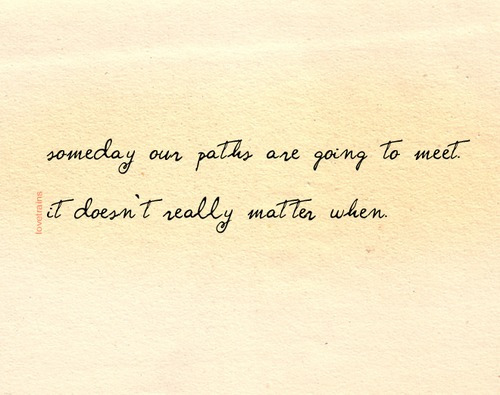 someday our paths are going to meet.
it doesn't really matter when.
lovetrains